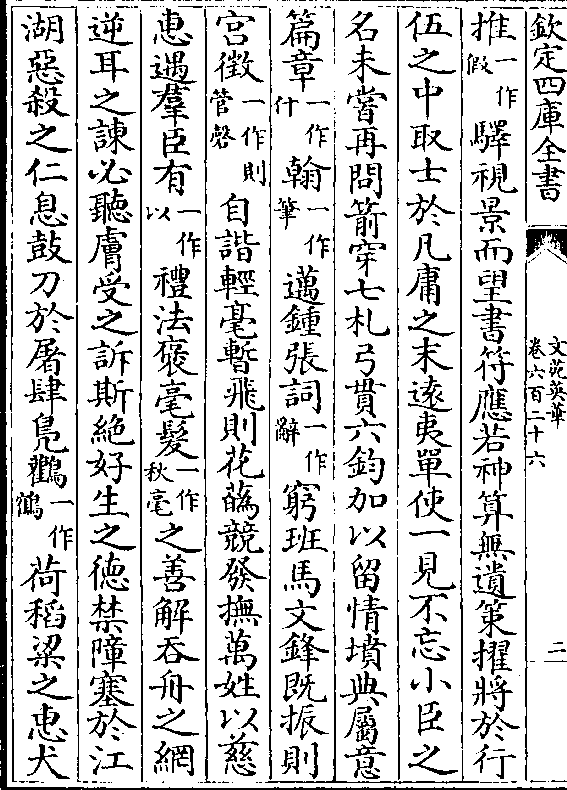 欽定四庫全書
文苑英華
卷六百二十六
二
推一作假驛視景而望書符應若神算無遺策擢將於行
伍之中取士於凡庸之末逺夷單使一見不忘小臣之
名未嘗再問箭穿七札弓貫六鈞加以留情墳典屬意
篇章一作什翰一作筆邁鍾張詞一作辭窮班馬文鋒既振則
宫徵一作則管磬自諧輕毫暫飛則花蘤競發撫萬姓以慈
惠遇羣臣有一作以禮法褒毫髮一作秋毫之善解吞舟之網
逆耳之諫必聽膚受之訴斯絶好生之徳禁障塞於江
湖惡殺之仁息鼓刀於屠肆鳬鸛一作鶴荷稻粱之恵犬